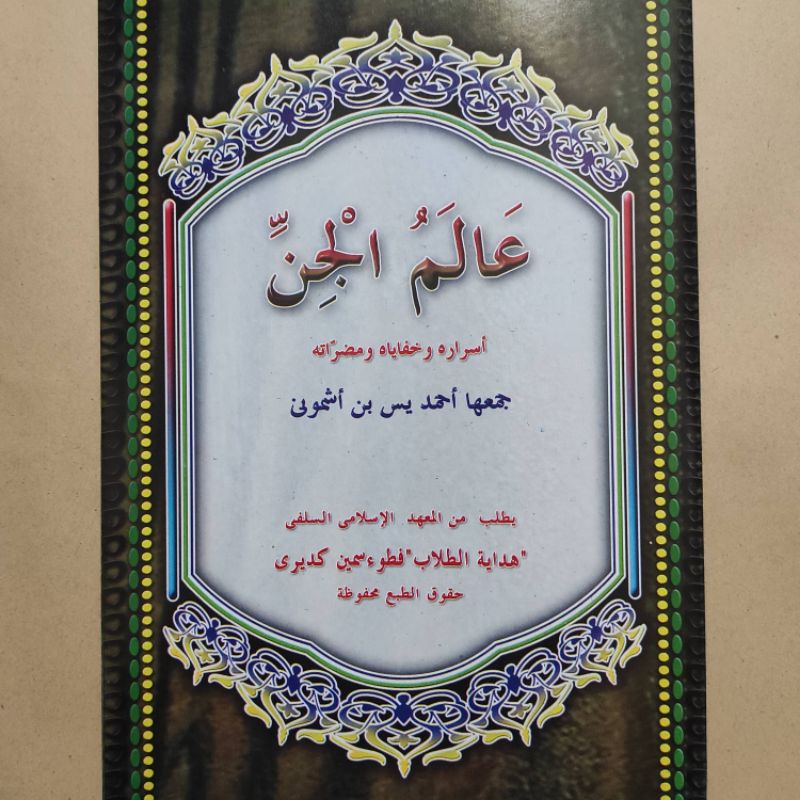 عَالَمُ الْجِنِّ
أسراره وخفاياه ومضرّاته
جمعها أحمد يس بن أشمونى
يطلب من المعهد الإسلامى السلفى
"هداية الطلاب" فطوءسمين كديرى
حقوق الطبع محفوظة